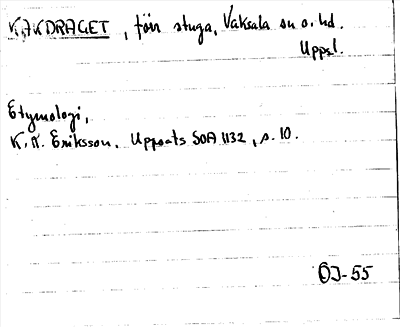 KAKDRAGET, förr stuga, Vaksala sn o. hd.
Uppsl.
Etymologi,
K. A. Eriksson. Uppsats SOA 1132, s. 10.
ÖJ-55